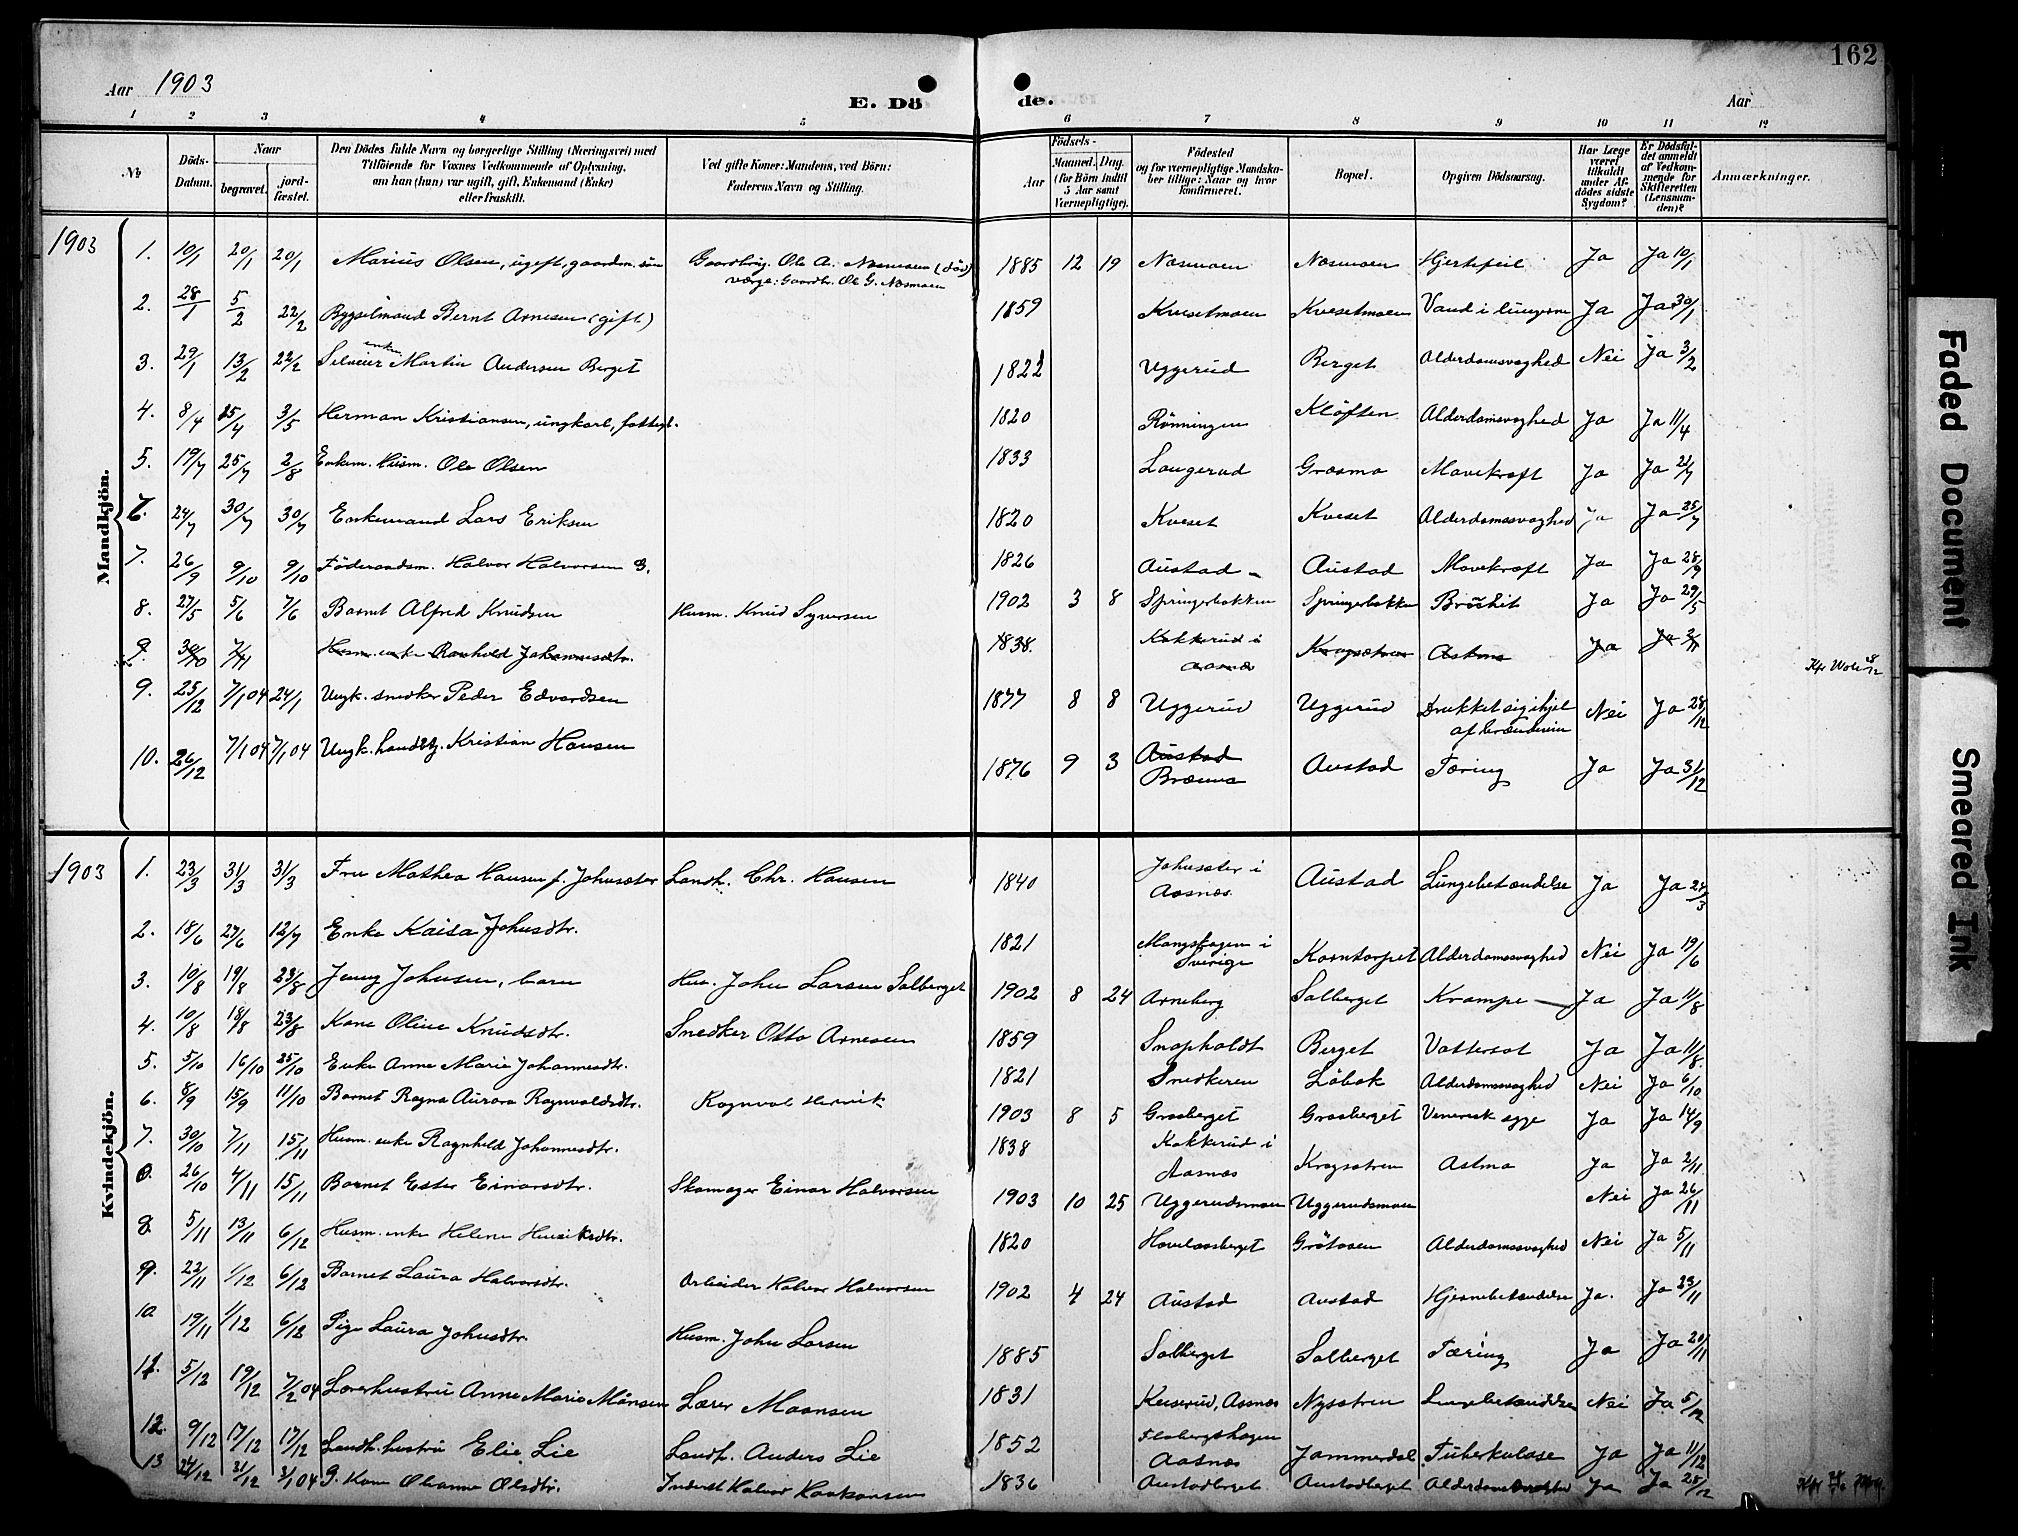 162
Aar 1903
E. Dö de.
Aar
1 2 3 4 5 6 7 8 9 10 11 12
No
Döds-Datum.
Naar
begravet.
jord-fæstet.
Den Dödes fulde Navn og borgerlige Stilling (Næringsvei) med
Tilföiende for Voxnes Vedkommende af Oplysning,
om han (hun) var ugift, gift, Enkemand (Enke)
eller fraskilt.
Ved gifte Koner: Mandens, ved Börn:
Faderens Navn og Stilling.
Födsels-
Aar
Maaned. Dag.
(for Börn indtil
5 Aar samt
Værnepligtige).
Födested
og for værnepligtige Mandska-
ber tillige: Naar og hvor
konfirmeret.
Bopæl.
Opgiven Dödsaarsag.
Har Læge
været
tilkaldt
under Af-
dödes sidste
Sygdom?
Er Dödsfal-
det anmeldt
af Vedkom-
mende for
Skifteretten
(Lensman-
den)?
Anmærkninger.
Mandkjön.
1903 1. 10/1 20/1 20/1 Marius Olsen, ugift, gaardm. søn Gaardbrug. Ole A. Næsmoen (død) 1885 12 19 Næsmoen Næsmoen Hjertefeil Ja Ja 10/1
værge: Gaardbr. Ole G. Næsmoen
2. 28/1 5/2 22/2 Bygselmand Bernt Arnesen (gift) 1859 Kvesetmoen Kvesetmoen Vand i lungerne Ja Ja 30/1
3. 29/1 13/2 22/2 Selveier enkem Martin Andersen Berget 1822 Uggerud Berget Alderdomsvaghed Nei Ja 3/2
4. 8/4 25/4 3/5 Herman Kristiansen, ungkarl, fattigl. 1820 Rønningen Kløften Alderdomsvaghed Ja Ja 11/4
5. 19/7 25/7 2/8 Enkem. Husm. Ole Olsen 1833 Langerud Grasmo Mavekræft Ja Ja 21/7
6. 24/7 30/7 30/7 Enkemand Lars Eriksen 1820 Kveset Kveset Alderdomsvaghed Ja Ja 25/7
7. 26/9 9/10 9/10 Føderaadsm. Halvor Halvorsen G. 1826 Austad Austad Mavekræft Ja Ja 28/9
8. 27/5 5/6 7/6 Barnet Alfred Knudsen Husm. Knud Syversen 1902 3 8 Springerbakken Springerbakken Brochit Ja Ja 29/5
9. 30/10 7/11 Husm. enke Ranhold Johannesdtr. 1838. Kokkerud i Aasnæs Krogsætren Astma Ja Ja 2/11
9. 25/12 7/1 04 24/1 Ungk. snedker Peder Edvardsen 1877 8 8 Uggerud Uggerud Drukket sig ihjel Nei Ja 28/12
af brændevin
10. 26/12 7/1 04 7/1 04 Ungk. handelsbtj. Kristian Hansen 1876 9 3 Austad Brænna Austad Tæring Ja Ja 31/12
Kvindekjön.
1903 1. 23/3 31/3 31/3 Fru Mathea Hansen f. Johnsæter Landh. Chr. Hansen 1840 Johnsæter i Aasnæs Austad Lungebetændelse Ja Ja 24/3
2. 18/6 27/6 12/7 Enke Kaisa Johnsdtr. 1821 Mangskogen i Sverige Korntorpet Alderdomsvaghed Nei Ja 19/6
3. 10/8 19/8 23/8 Jenny Johnsen, barn Hus. John Larsen Solberget 1902 8 24 Arneberg Solberget Krampe Ja Ja 11/8
4. 10/8 18/8 23/8 Kone Oline Knudsdtr. Snedker Otto Arnesen 1859 Snapholdt Berget Vattersot Ja Ja 11/8.
5. 5/10 16/10 25/10 Enke Anne Marie Johannesdtr. 1821 Snedkeren Løbak Alderdomsvaghed Nei Ja 6/10
6. 8/9 15/9 11/10 Barnet Ragna Aurora Ragnvaldsdtr. Ragnval Hervik 1903 8 5 Grasberget Grasberget Ja Ja 14/9
7. 30/10 7/11 15/11 Husm. enke Ragnhild Johannesdtr. 1838 Kokkerud i Aasnæs Krogsætren Astma Ja Ja 2/11
0. 26/10 4/11 15/11 Barnet Ester Einarsdtr. Skomager Einar Halvorsen 1903 10 25 Uggerudsmoen Uggerudsmoen Nei Ja 26/11
8. 5/11 13/11 6/12 Husm. enke Helene Henriksdtr. 1820 Hovelaasberget Grøtaasen Alderdomsvaghed Nei Ja 5/11
9. 22/11 1/12 6/12 Barnet Laura Halvorsdtr. Arbeider Halvor Halvorsen 1902 4 24 Austad Austad Hjernebetændelse Ja. Ja 23/11
10. 19/11 1/12 6/12 Pige Laura Johnsdtr. Husm. John Larsen 1885 Solberget Solberget Tæring Ja Ja 20/11
11. 5/12 19/12 7/2 04 Lærerhustru Anne Marie Månsen Lærer Maansen 1831 Keiserud, Aasnæs Nysætren Lungebetændelse Nei Ja 5/12
12. 9/12 17/12 17/12 Landh. hustru Elie Lie Landh. Anders Lie 1852 Flobergshagen Aasnæs Jammerdal Tuberkulose Ja Ja 11/12
13 24/12 31/12 3/1 04 G. Kone Oleanne Olsdtr. Inderst Halvor Haakonsen 1836 Austadberget Austadberget Alderdomsvaghed Ja Ja 28/12
Faded Document
Smeared Ink